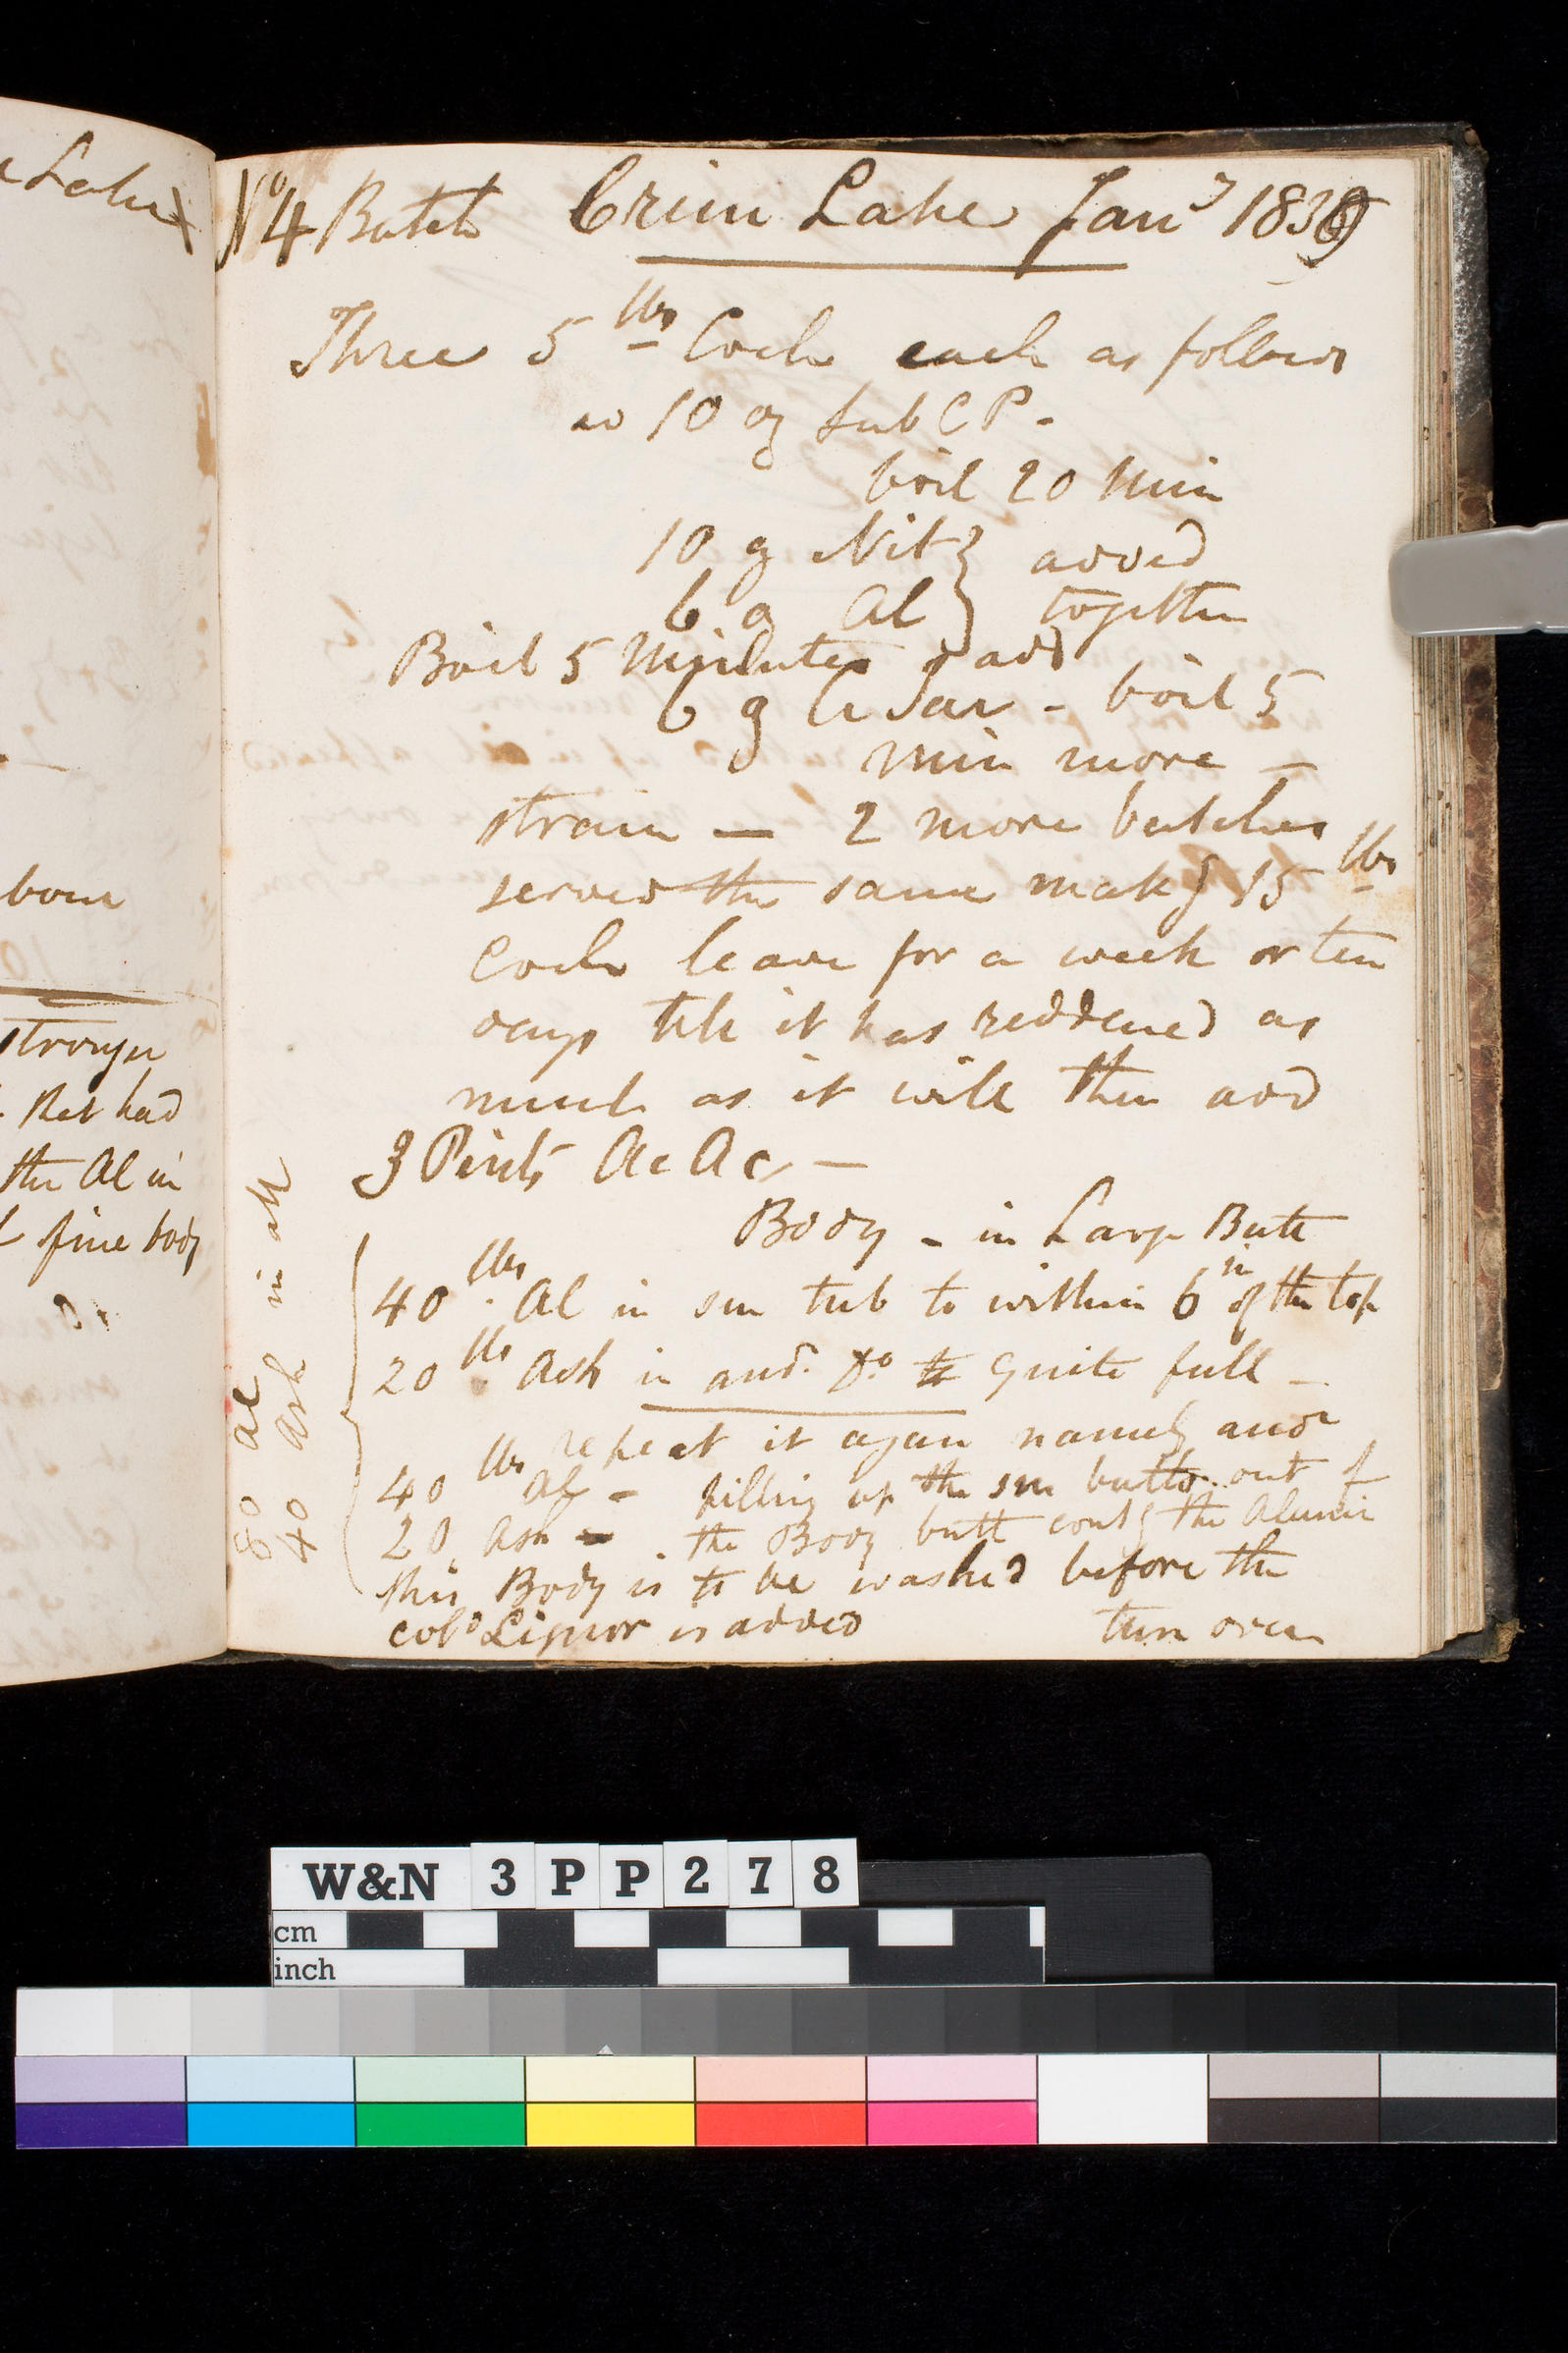 a Lake
bour
stronger
that had
the Al in
fine body
No 4 Batch Crim Lake Jany 1839
Three 5 lbs Coch each as follows
10 oz Sub C P -
boil 20 Min
10 oz Nit } added
6 oz Al } together
Boil 5 Minutes & add
6 oz Cr Tar - boil 5
min more -
strain - 2 more batches
served the same makg 15 lbs
Coch leave for a week or ten
days till it has reddened as
much as it will then add
3 Pints Ac Ac -
Body - in Large Butt
40 lbs Al in sm tub to within 6 in of the top
20 lbs Ash in anor. Do to quite full -
repeat it again namely anor
40 lbs Al - filling up the sm butts out of
20 Ash - the Body butt contg the Alumin
this Body is to be washed before the
cold Liquor is added turn over
80 Al
40 Ash in all
W&N 3PP278
cm
inch